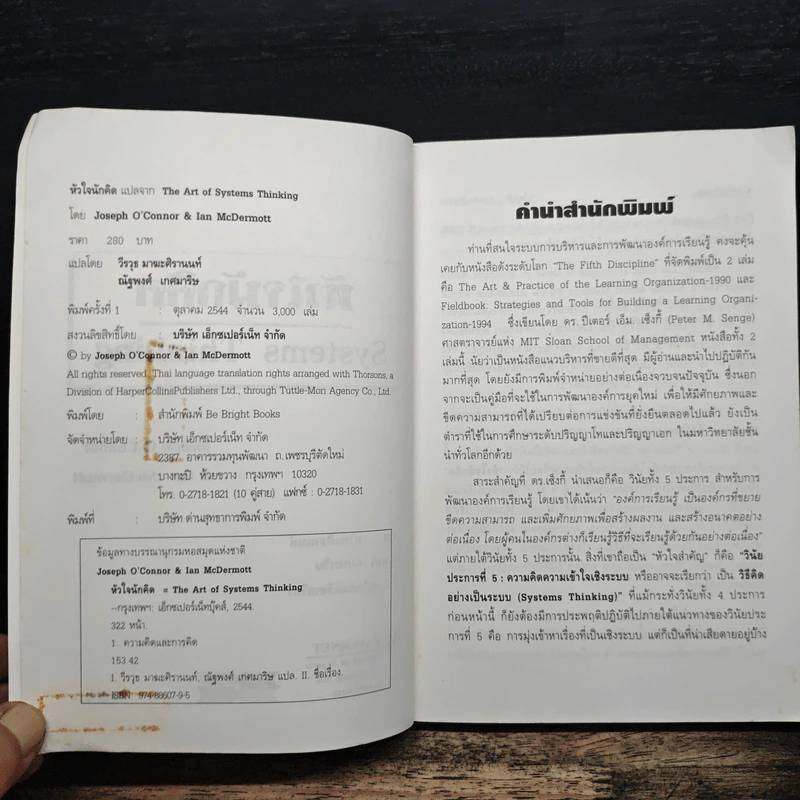 หัวใจนักคิด แปลจาก The Art of Systems Thinking
โดย Joseph O'Connor & Ian McDermott
ราคา 280 บาท
แปลโดย วีรวุธ มาฆะศิรานนท์
ณัฐพงศ์ เกศมาริษ
พิมพ์ครั้งที่ 1 : ตุลาคม 2544 จำนวน 3,000 เล่ม
สงวนลิขสิทธิ์โดย : บริษัท เอ็กซเปอร์เน็ท จำกัด
© by Joseph O'Connor & Ian McDermott
All rights reserved. Thai language translation rights arranged with Thorsons, a
Division of HarperCollinsPublishers Ltd., through Tuttle-Mori Agency Co., Ltd.
พิมพ์โดย : สำนักพิมพ์ Be Bright Books
จัดจำหน่ายโดย : บริษัท เอ็กซเปอร์เน็ท จำกัด
2387 อาคารรวมทุนพัฒนา ถ.เพชรบุรีตัดใหม่
บางกะปิ ห้วยขวาง กรุงเทพฯ 10320
โทร. 0-2718-1821 (10 คู่สาย) แฟกซ์ : 0-2718-1831
พิมพ์ที่ : บริษัท ด่านสุทธาการพิมพ์ จำกัด
ข้อมูลทางบรรณานุกรมหอสมุดแห่งชาติ
Joseph O'Connor & Ian McDermott
หัวใจนักคิด = The Art of Systems Thinking
--กรุงเทพฯ: เอ็กซเปอร์เน็ทบุ๊คส์, 2544.
322 หน้า.
1. ความคิดและการคิด
153.42
I. วีรวุธ มาฆะศิรานนท์, ณัฐพงศ์ เกศมาริษ แปล. II. ชื่อเรื่อง.
ISBN 974-88607-9-5
คำนำสำนักพิมพ์
ท่านที่สนใจระบบการบริหารและการพัฒนาองค์การเรียนรู้ คงจะคุ้น
เคยกับหนังสือดังระดับโลก "The Fifth Discipline" ที่จัดพิมพ์เป็น 2 เล่ม
คือ The Art & Practice of the Learning Organization-1990 และ
Fieldbook: Strategies and Tools for Building a Learning Organi-
zation-1994 ซึ่งเขียนโดย ดร.ปีเตอร์ เอ็ม. เซ็งกี้ (Peter M. Senge)
ศาสตราจารย์แห่ง MIT Sloan School of Management หนังสือทั้ง 2
เล่มนี้ นับว่าเป็นหนังสือแนวบริหารที่ขายดีที่สุด มีผู้อ่านและนำไปปฏิบัติกัน
มากที่สุด โดยยังมีการพิมพ์จำหน่ายอย่างต่อเนื่องจวบจนปัจจุบัน ซึ่งนอก
จากจะเป็นคู่มือที่จะใช้ในการพัฒนาองค์การยุคใหม่ เพื่อให้มีศักยภาพและ
ขีดความสามารถที่ได้เปรียบต่อการแข่งขันที่ยั่งยืนตลอดไปแล้ว ยังเป็น
ตำราที่ใช้ในการศึกษาระดับปริญญาโทและปริญญาเอก ในมหาวิทยาลัยชั้น
นำทั่วโลกอีกด้วย
สาระสำคัญที่ ดร.เซ็งกี้ นำเสนอก็คือ วินัยทั้ง 5 ประการ สำหรับการ
พัฒนาองค์การเรียนรู้ โดยเขาได้เน้นว่า "องค์การเรียนรู้ เป็นองค์กรที่ขยาย
ขีดความสามารถ และเพิ่มศักยภาพเพื่อสร้างผลงาน และสร้างอนาคตอย่าง
ต่อเนื่อง โดยผู้คนในองค์กรต่างก็เรียนรู้วิธีที่จะเรียนรู้ด้วยกันอย่างต่อเนื่อง"
แต่ภายใต้วินัยทั้ง 5 ประการนั้น สิ่งที่เขาถือเป็น "หัวใจสำคัญ" ก็คือ "วินัย
ประการที่ 5 : ความคิดความเข้าใจเชิงระบบ หรืออาจจะเรียกว่า เป็น วิธีคิด
อย่างเป็นระบบ (Systems Thinking)" ที่แม้กระทั่งวินัยทั้ง 4 ประการ
ก่อนหน้านี้ ก็ยังต้องมีการประพฤติปฏิบัติไปภายใต้แนวทางของวินัยประ
การที่ 5 คือ การมุ่งเข้าหาเรื่องที่เป็นเชิงระบบ แต่ก็เป็นที่น่าเสียดายอยู่บ้าง